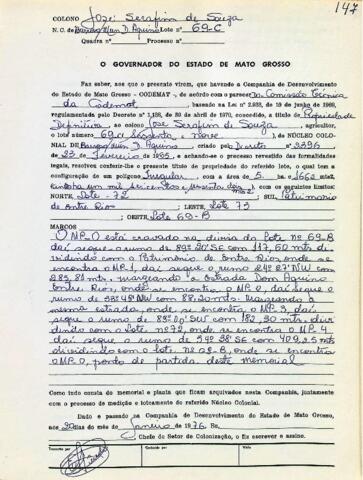 147
COLONO José Serafim de Souza
N. C. de Barão Mun D. Aquino Lote nº 69-C
Quadra nº Processo nº
O GOVERNADOR DO ESTADO DE MATO GROSSO
Faz saber, aos que o presente virem, que havendo a Companhia de Desenvolvimento
do Estado de Mato Grosso - CODEMAT -, de acordo com o parecer da Comissão Técnica
da Codemat, baseado na Lei nº 2.933, de 19 de junho de 1969,
regulamentada pelo Decreto nº 1.138, de 30 de abril de 1970, concedido, a título de Propriedade
Definitiva, ao colono José Serafim de Souza, agricultor,
o lote nº 69-C Sessenta e nove, do NÚCLEO COLO-
NIAL DE D. Aquino, criado pelo Decreto nº 2396
de 22 de Fevereiro de 1955, e achando-se o processo revestido das formalidades
legais, resolveu conferir-lhe o presente título de propriedade do referido lote, o qual tem a
configuração de um polígono Irregular, com a área de 5 ha. 1662 m2,
com os seguintes limites:
NORTE, Lote - 72 SUL, Patrimonio
de Entre Rios LESTE, Lote 73
OESTE, Lote 69-B
MARCOS
O MP.0 está cravado na divisa do Lote nº 69-B
daí segue o rumo de 89º20'SE com 117,60 mts di-
vidindo com o Patrimônio de Entre Rios, onde se
encontra o MP-1, daí segue o rumo 24º27'NW com
mts, margeando a Estrada Dom Aquino
Entre Rios, onde se encontra o MP-2, daí segue o
rumo de 38º48'NW com 88,20 mts. Margeando a
mesma estrada, onde se encontra o MP-3, daí
segue o rumo de SW com 182,30 mts. divi-
dindo com o Lote nº 72, onde se encontra o MP-4
daí segue o rumo de SE com mts
dividindo com o Lote nº 69-B, onde se encontra
o MP.0, ponto de partida deste memorial
Como tudo consta do memorial e planta que ficam arquivados nesta Companhia, juntamente
com o processo de medição e loteamento do referido Núcleo Colonial.
Dado e passado na Companhia de Desenvolvimento do Estado de Mato Grosso,
aos 20 dias do mês de Janeiro de 1976. Eu,
Chefe do Setor de Colonização, o fiz escrever e assino.
Transcrito por Conferido por Visto